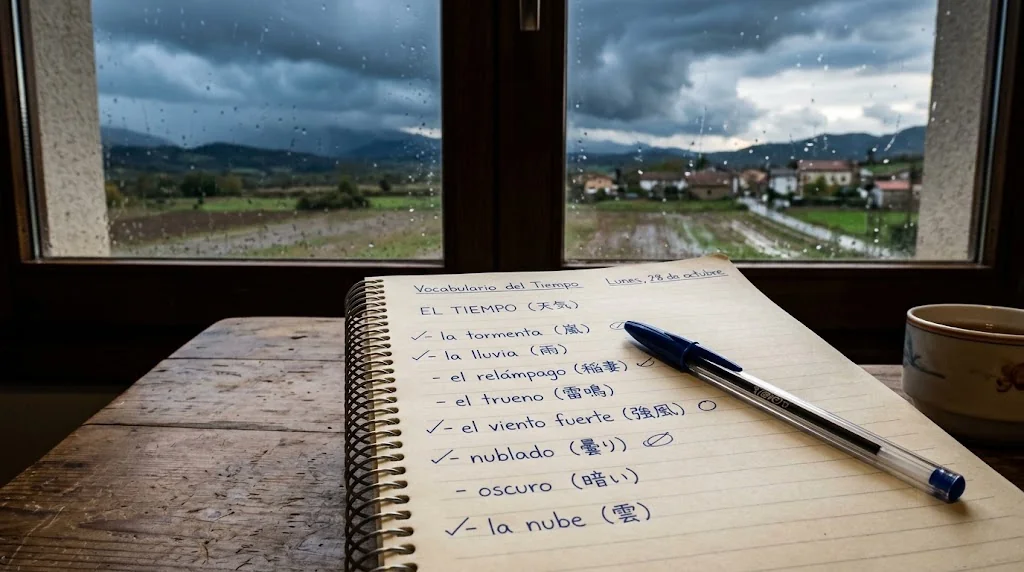 Vocabulario del Tiempo Lunes, 28 de octubre
EL TIEMPO (天気)
✓- la tormenta (嵐)
✓- la lluvia (雨)
- el relámpago (稲妻)
- el trueno (雷鳴)
✓- el viento fuerte (強風)
✓- nublado (曇り)
- oscuro (暗い)
✓- la nube (雲)